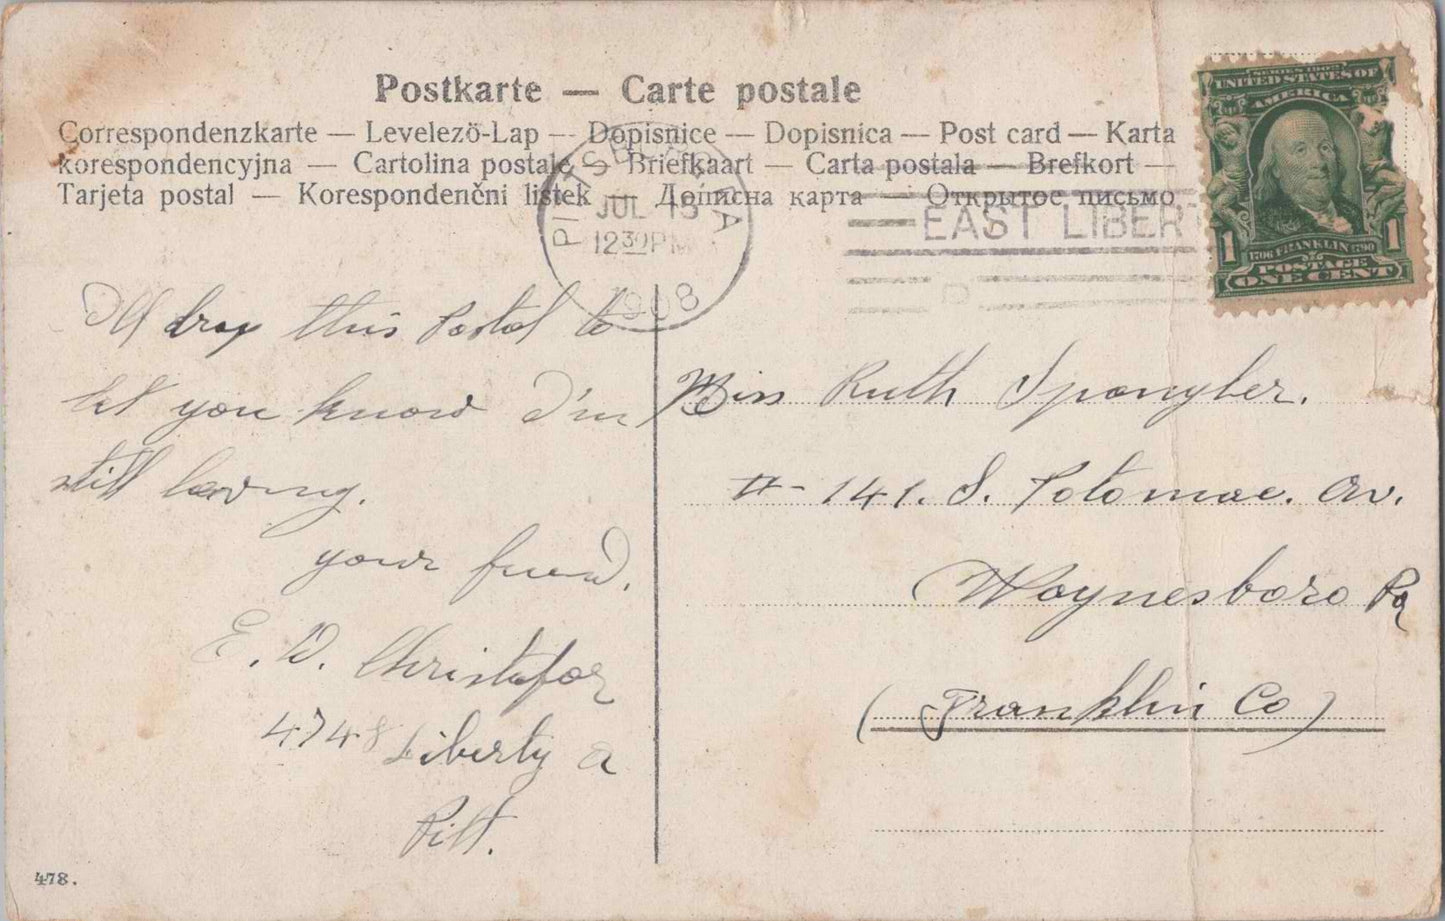 Postkarte — Carte postale
Correspondenzkarte — Levelező-Lap — Dopisnice — Dopisnica — Post card — Karta
korespondencyjna — Cartolina postale — Briefkaart — Carta postala — Brefkort —
Tarjeta postal — Korespondenční lístek — Дописна карта — Открытое письмо
PITTSBURG PA
JUL 15
12 30 PM
1908
EAST LIBERT
SERIES 1902
UNITED STATES OF
AMERICA
1 1
1706 FRANKLIN 1790
POSTAGE
ONE CENT
I'll drop this Postal to
let you know I'm
still loving.
your friend.
E. D. Christofor
4748 Liberty a
Pitt.
Miss Ruth Spangler.
#- 141. S. Potomac. Av.
Waynesboro Pa
(Franklin Co)
478.